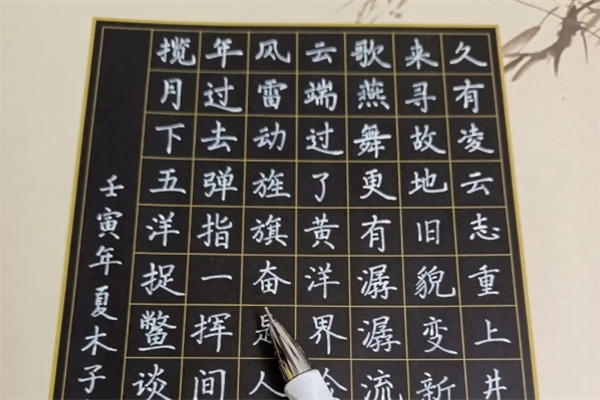 久有凌云志重上井
来寻故地旧貌变新
歌燕舞更有潺潺流
云端过了黄洋界
风雷动旌旗奋是人
年过去弹指一挥间
揽月下五洋捉鳖谈
壬寅年夏木子